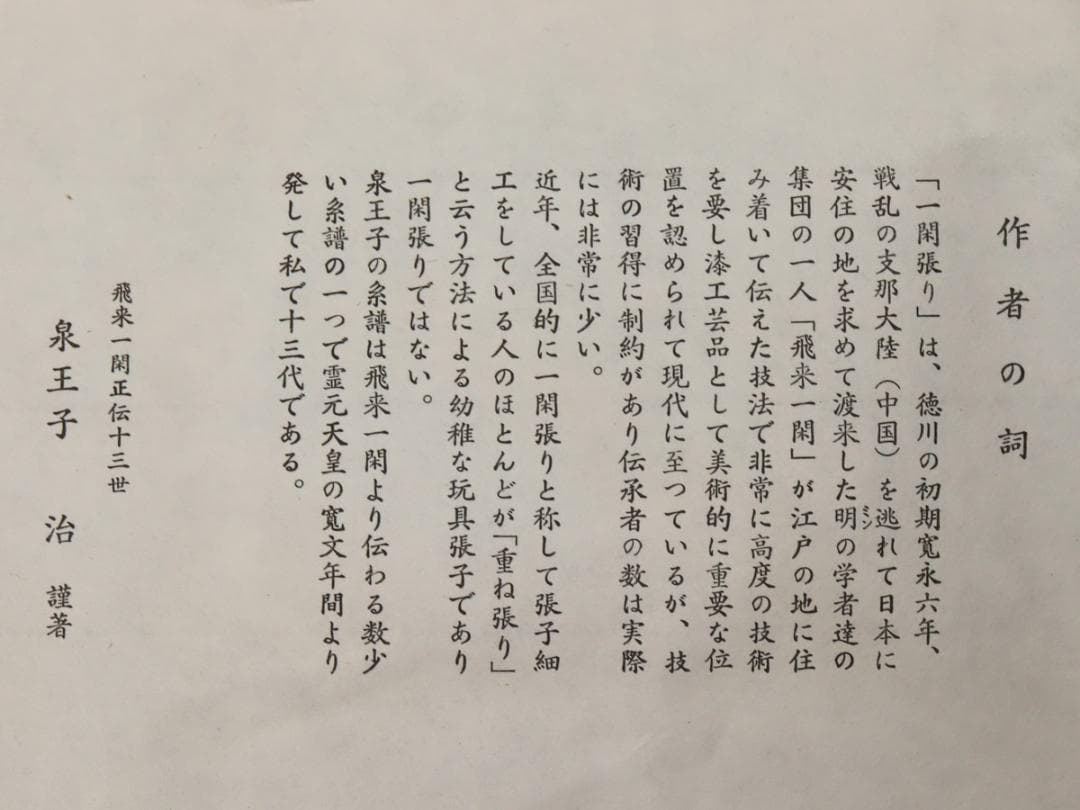 作者の詞
「一閑張り」は、徳川の初期寛永六年、
戦乱の支那大陸（中国）を逃れて日本に
安住の地を求めて渡来した明ミンの学者達の
集団の一人「飛来一閑」が江戸の地に住
み着いて伝えた技法で非常に高度の技術
を要し漆工芸品として美術的に重要な位
置を認められて現代に至つているが、技
術の習得に制約があり伝承者の数は実際
には非常に少い。
近年、全国的に一閑張りと称して張子細
工をしている人のほとんどが「重ね張り」
と云う方法による幼稚な玩具張子であり
一閑張りではない。
泉王子の系譜は飛来一閑より伝わる数少
い系譜の一つで霊元天皇の寛文年間より
発して私で十三代である。
飛来一閑正伝十三世
泉王子 治 謹著